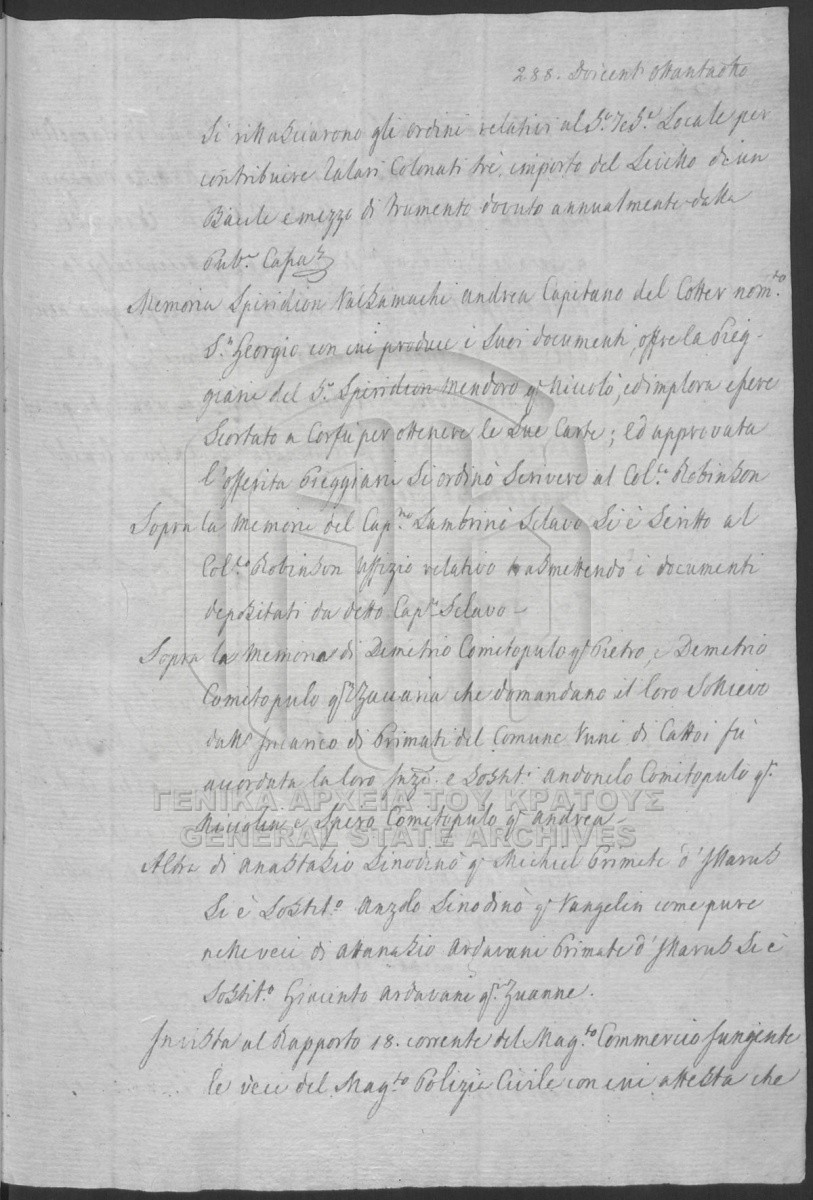 288. Doicent Ottantaotto
Si rillasciarono gli ordini relativi al Locale per
contribuire Talari Colonati trè, importo del Livello di un
Bacile e mezzo di Frumento dovuto annualmente dalla
Memoria Spiridion andrea Capitano del Cotter nom.to
S.n Georgio con cui produce i Suoi documenti, offre la Pieg-
giaria del S.r Spiridion Mendoro q.m Niccolò, ed implora essere
Scortato a Corfù per ottenere le Sue Carte; ed approvata
l'offerita Pieggiaria Si ordinò Scrivere al Col.lo Robinson
Sopra la Memoria del Cap.no Lambrinò Sclavo Si è Scritto al
Col.lo Robinson Uffizio relativo trasmettendo i documenti
depositati da detto Cap.n Sclavo -
Sopra la Memoria di Demetrio Comitopulo q.m Pietro, e Demetrio
Comitopulo q.m Zaccaria che domandano il loro Sollievo
dall' Incarico di Primati del Comune Vuni di Cattoi fù
accordata la loro e Sostit.i Andonelo Comitopulo q.m
Niccolin e Spiro Comitopulo q.m Andrea -
ΓΕΝΙΚΑ ΑΡΧΕΙΑ ΤΟΥ ΚΡΑΤΟΥΣ
GENERAL STATE ARCHIVES
Altra di Anastasio Sinodinò q.m Michiel Primate d'
Si è Sostit.o Anzolo Sinodinò q.m Vangelin come pure
nelle veci di Attanasio Ardavani Primate d' Si è
Sostit.o Giacinto Ardavani q.m Zuanne.
In vista al Rapporto 18. corrente del Mag.to Commercio fungente
le veci del Mag.to Polizia Civile con cui attesta che